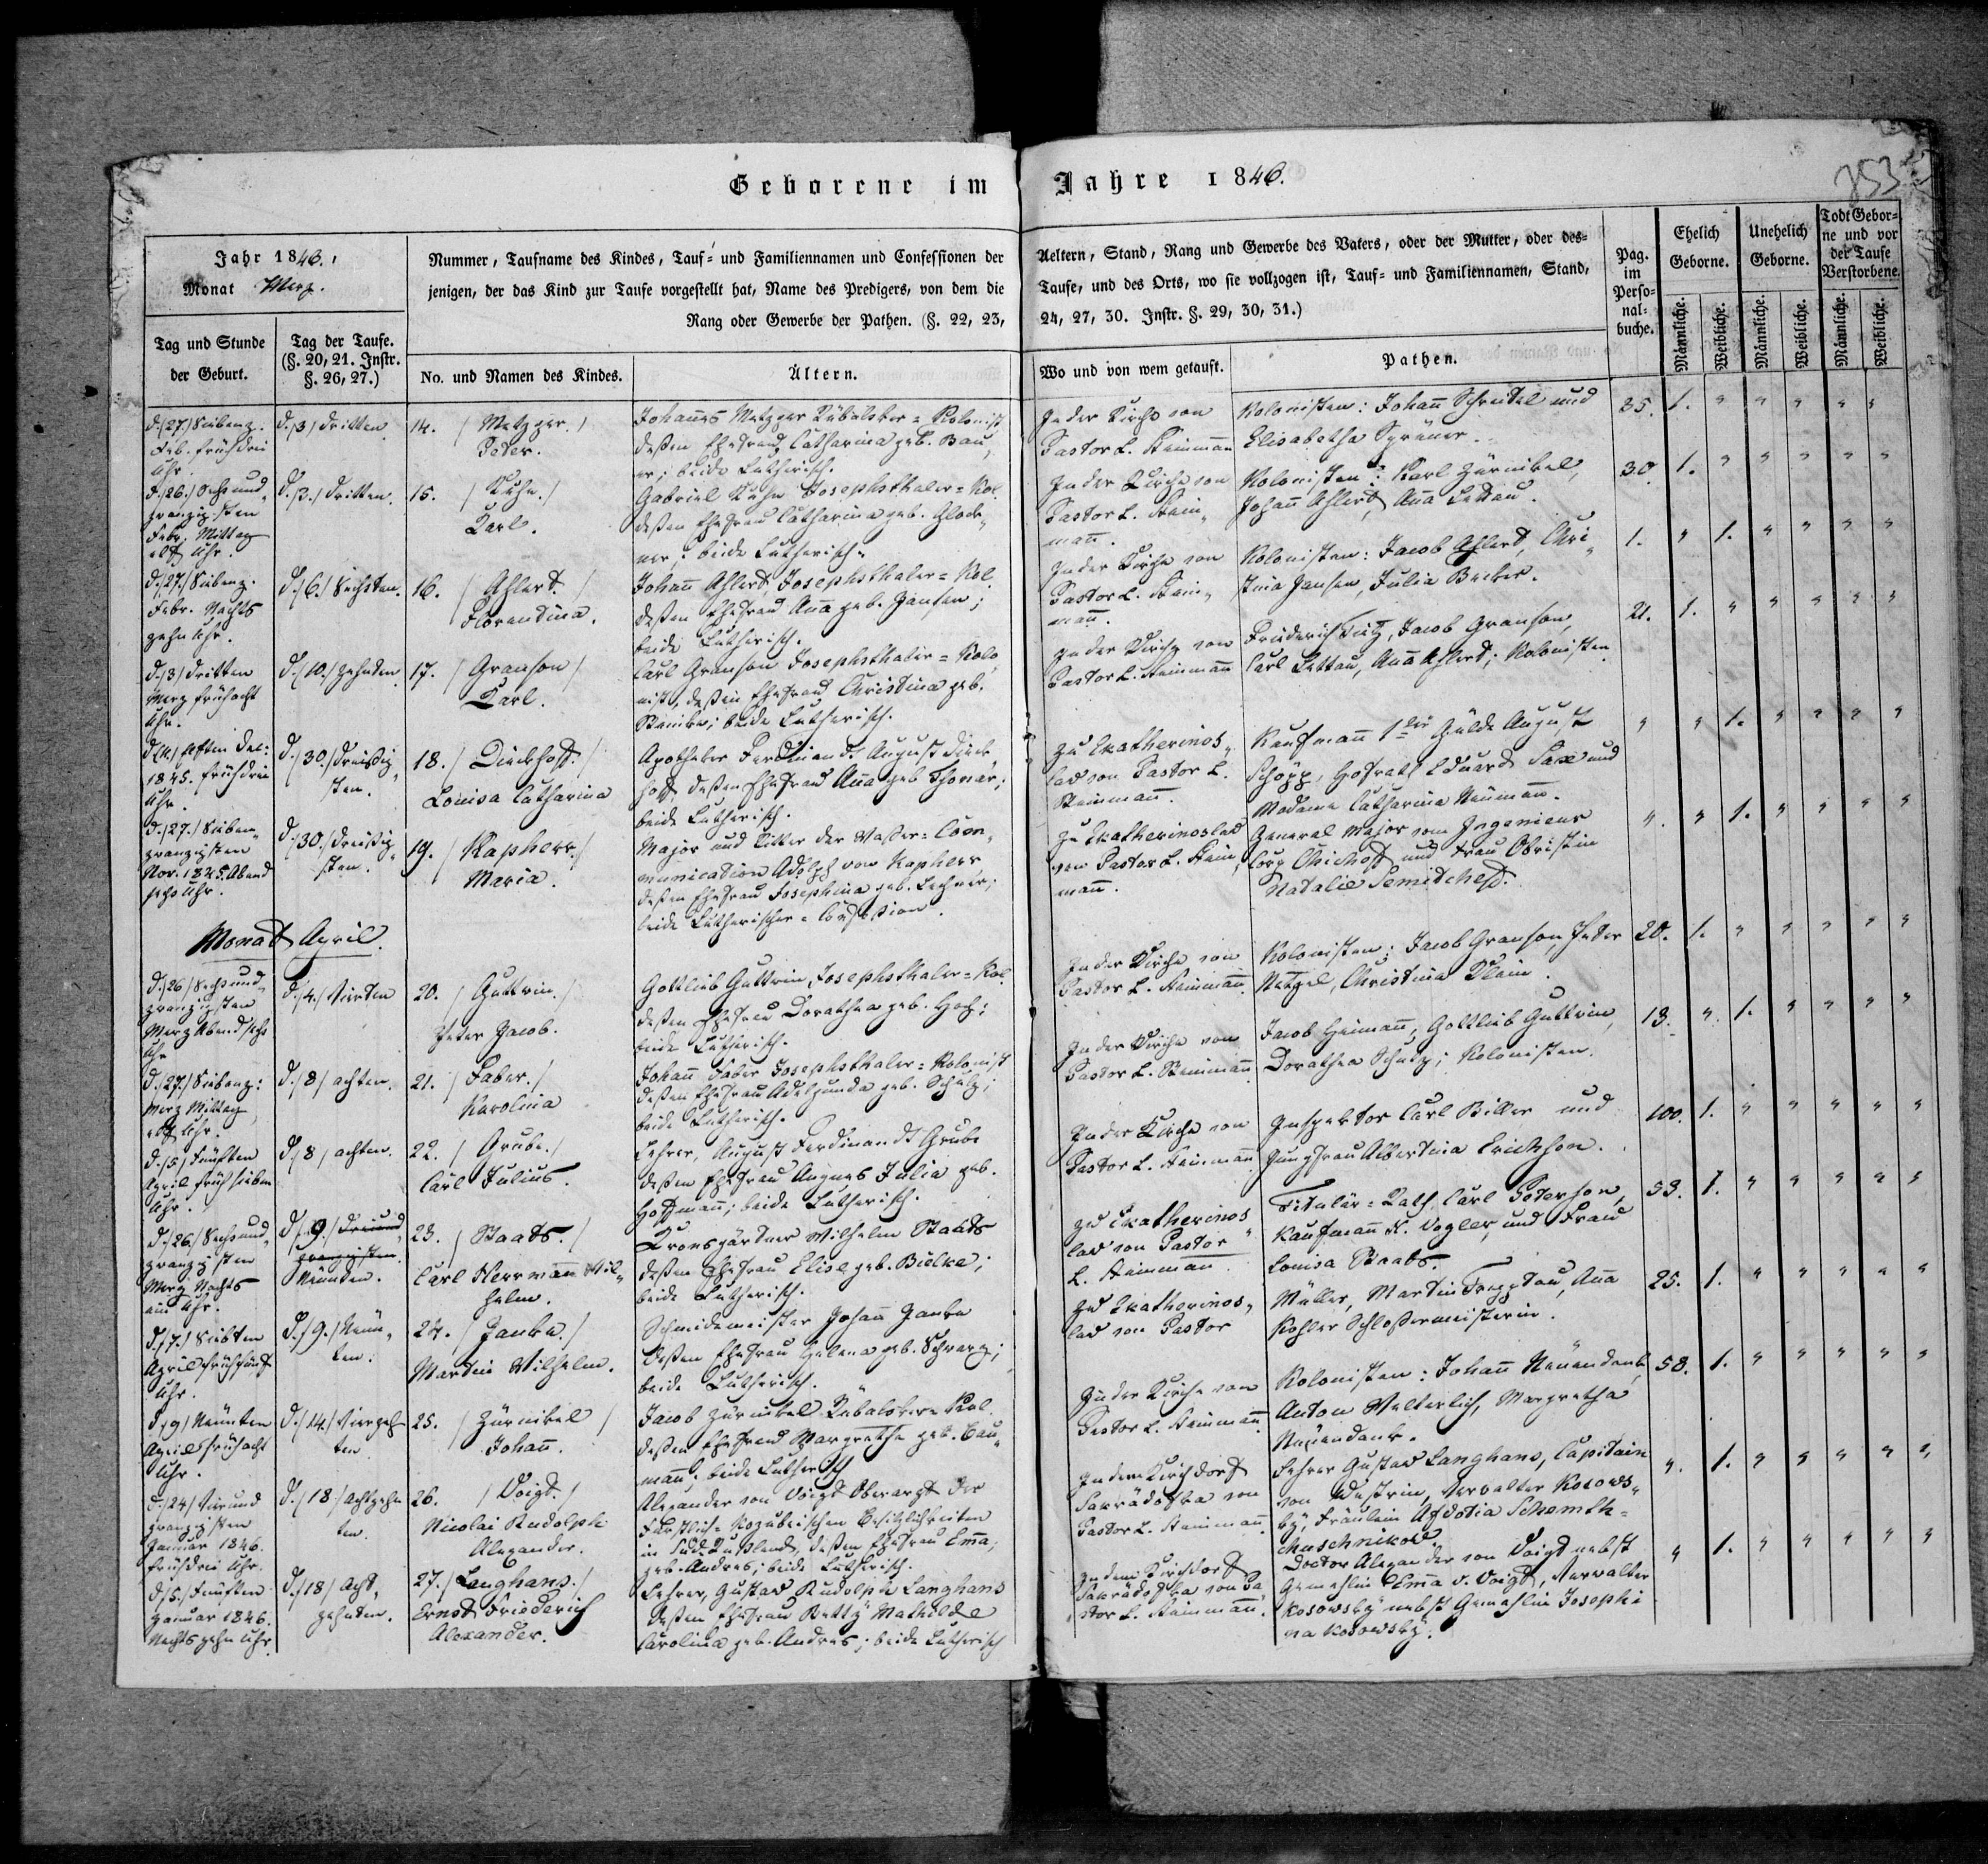 Geborene im Jahre 1846.
253
Jahr 1846.
Monat Merz.
Nummer, Taufname des Kindes, Tauf- und Familiennamen und Confessionen der Aeltern, Stand, Rang und Gewerbe des Vaters, oder der Mutter, oder des-
jenigen, der das Kind zur Taufe vorgestellt hat, Name des Predigers, von dem die Taufe, und des Orts, wo sie vollzogen ist, Tauf- und Familiennamen, Stand,
Rang oder Gewerbe der Pathen. (§. 22, 23, 24, 27, 30. Instr. §. 29, 30, 31.)
Pag. im Perso-nal-buche.
Ehelich Geborne.
Unehelich Geborne.
Todt Gebor-ne und vor der Taufe Verstorbene.
Männliche. Weibliche. Männliche. Weibliche. Männliche. Weibliche.
Tag und Stunde der Geburt.
Tag der Taufe. (§. 20, 21. Instr. §. 26, 27.)
No. und Namen des Kindes.
Ältern.
Wo und von wem getauft.
Pathen.
d. /27/ Siebenz.
Feb. früh drei
Uhr.
d. /3/ dritten
14. / Metzger. /
Peter.
Johannes Metzger Rübalsker = Kolonist
deßen Ehefrau Catharina geb. Bau„
er; beide Lutherisch.
In der Kirche von
Pastor L. Steinmañ
Kolonisten: Johañ Schreitel und
Elisabetha Sprüner.
25. 1. " " " " "
d. /26./ Sechs und„
zwanzigsten
Febr. Mittag
elf Uhr.
d. /3./ dritten.
15. / Kuhn. /
Karl.
Gabriel Kuhn Josephsthaler = Kol.
deßen Ehefrau Catharina geb. Glock„
ner; beide Lutherisch.
In der Kirche von
Pastor L. Stein„
mañ.
Kolonisten: Karl Zürnikel,
Johañ Ahlert, Aña Lettau.
30. 1. " " " " "
d. /27./ Siebenz.
Febr. Nachts
zehn Uhr.
d. /6./ Sechsten.
16. / Ahlert. /
Florentina.
Johañ Ahlert, Josephsthaler = Kol.
deßen Ehefrau Aña geb. Jansen;
beide Lutherisch.
In der Kirche von
Pastor L. Stein„
mañ.
Kolonisten: Jacob Ahlert, Chri„
stina Jansen, Julia Becker.
1. " 1. " " " "
d. /3/ dritten
Merz früh acht
Uhr.
d. /10./ zehnden
17. / Granson /
Karl.
Carl Granson Josephsthaler = Kolo„
nist, deßen Ehefrau Christina geb.
beide Lutherisch.
In der Kirche von
Pastor L. Steinmañ
Friederich Tietz, Jacob Granson,
Carl Lettau, Aña Ahlert; Kolonisten.
21. 1. " " " " "
Dec:
1845. früh drei
Uhr.
d. /30./ dreißig„
sten.
18. / Dieckhoff. /
Louisa Catharina
Apotheker Ferdinandt August Dieck„
hoff deßen Ehefrau Aña geb Thonar;
beide Lutherisch.
Zu Ekatherinos„
law von Pastor L.
Steinmañ.
Kaufmañ 1ter Gülde August
Schöpp, Hofrath Eduard Saxe und
Madame Catharina Neümañ.
" " 1. " " " "
d. /27./ Sieben„
zwanzigsten
Nov. 1845. Abend
sechs Uhr.
d. /30./ dreißig„
sten.
19. / Kapherr. /
Maria.
Major und Ritter der Waßer = Com„
munication Adolph von Kapherr
deßen Ehefrau Josephina geb. Lechner;
beide Lutherischer = Confession.
Zu Ekatherinoslad
von Pastor L. Stein„
mañ.
General Major vom Ingenieur
Corp Chichoff und Frau Obristin
Natalie Semitcheff.
". " 1. " " " "
Monat April.
d. /26/ Sechs und„
zwanzigsten
Merz Abend sechs
Uhr
d. /4./ Vierten
20. / Guttrin. /
Peter Jacob.
Gottlieb Guttrin, Josephsthaler = Kol.
deßen Ehefrau Dorathea geb. Hoch;
beide Lutherisch.
In der Kirche von
Pastor L. Steinmañ.
Kolonisten: Jacob Granson Peter
Netzel, Christina Klein.
20. 1. " " " " "
d. /27./ Siebenz:
Merz Mittag
elf Uhr.
d. /8/ achten.
21. / Faber. /
Karolina
Johañ Faber Josephsthaler = Kolonist
deßen Ehefrau Adelgunda geb. Schulz;
beide Lutherisch.
In der Kirche von
Pastor L. Steinmañ
Jacob Heimañ, Gottlieb Guttrin,
Dorathea Schulz; Kolonisten.
13. " 1. " " " "
d. /5/ Fünften
April früh sieben
Uhr.
d. /8/ achten.
22. / Grube. /
Carl Julius.
Lehrer, August Ferdinandt Grube
deßen Ehefrau Augnes Julia geb.
Hoffmañ; beide Lutherisch.
In der Kirche von
Pastor L. Steinmañ
Inspektor Carl Biller und
Jungfrau Albertina Erickson.
100. 1. " " " " "
d. /26./ Sechs und„
zwanzigsten
Merz Nachts
ein Uhr.
d. /9./ Dreiund„
zwanzigsten
Neünten.
23. / Staats. /
Carl Herrmañ Wil„
helm.
Kronsgärtner Wilhelm Staats
deßen Ehefrau Elise geb. Bielke;
beide Lutherisch.
Zu Ekatherinos„
law von Pastor
L. Steinmañ
Titulär = Rath, Carl Peterson,
Kaufmañ K. Vogler, und Frau
Louisa Staats.
53. 1. " " " " "
d. /7./ Siebten
April früh fünf
Uhr.
d. /9./ Neün„
ten.
24. / Janke. /
Martin Wilhelm.
Schmidemeister Johañ Janke
deßen Ehefrau Helena geb. Schwarz;
beide Lutherisch.
Zu Ekatherinos„
law von Pastor
Müller, Martin Treptau, Aña
Kohler Schloßermeisterin.
25. 1. " " " " "
d. /9/ Neünten
April früh acht
Uhr.
d. /14./ Vierzehn
ten
25. / Zürnikel /
Johañ.
Jacob Zürnikel Rübalsker = Kol.
deßen Ehefrau Margretha geb. Bau„
mañ; beide Lutherisch
In der Kirche von
Pastor L. Steinmañ
Kolonisten: Johañ Neüendank,
Anton Welterlich, Margretha
Neüendank.
58. 1. " " " " "
d. /24/ Vier und
zwanzigsten
Januar 1846.
früh drei Uhr.
d. /18/ Achtzehn
ten.
26. / Voigt. /
Nicolai Rudolph
Alexander.
Alexander von Voigt Oberarzt der
Fürstlich = Kozubeischen Besitzlichkeiten
in Süd-Rußland, deßen Ehefrau Em̄a,
geb. Andres; beide Lutherisch.
In dem Kirchdorf
von
Pastor L. Steinmañ
Lehrer Gustav Langhans, Capitain
von Wustrin, Verwalter Kosows„
ky, Fräulein Afdotia Schemth=
chuschnikow
". 1. " " " " "
d. /5./ Fünften
Januar 1846.
Nachts zehn Uhr.
d. /18/ Acht„
zehnden.
27. / Langhans. /
Ernst Friederich
Alexander.
Lehrer, Gustav Rudolph Langhans
deßen Ehefrau Betty Mathilde
Carolina geb. Andres; beide Lutherisch
In dem Kirchdorf
von Pa
stor L. Steinmañ.
Doctor Alexander von Voigt nebst
Gemahlin Em̄a v. Voigt, Verwalter
Kosowsky nebst Gemahlin Josephi
na Kosowsky.
" 1. " " " " "